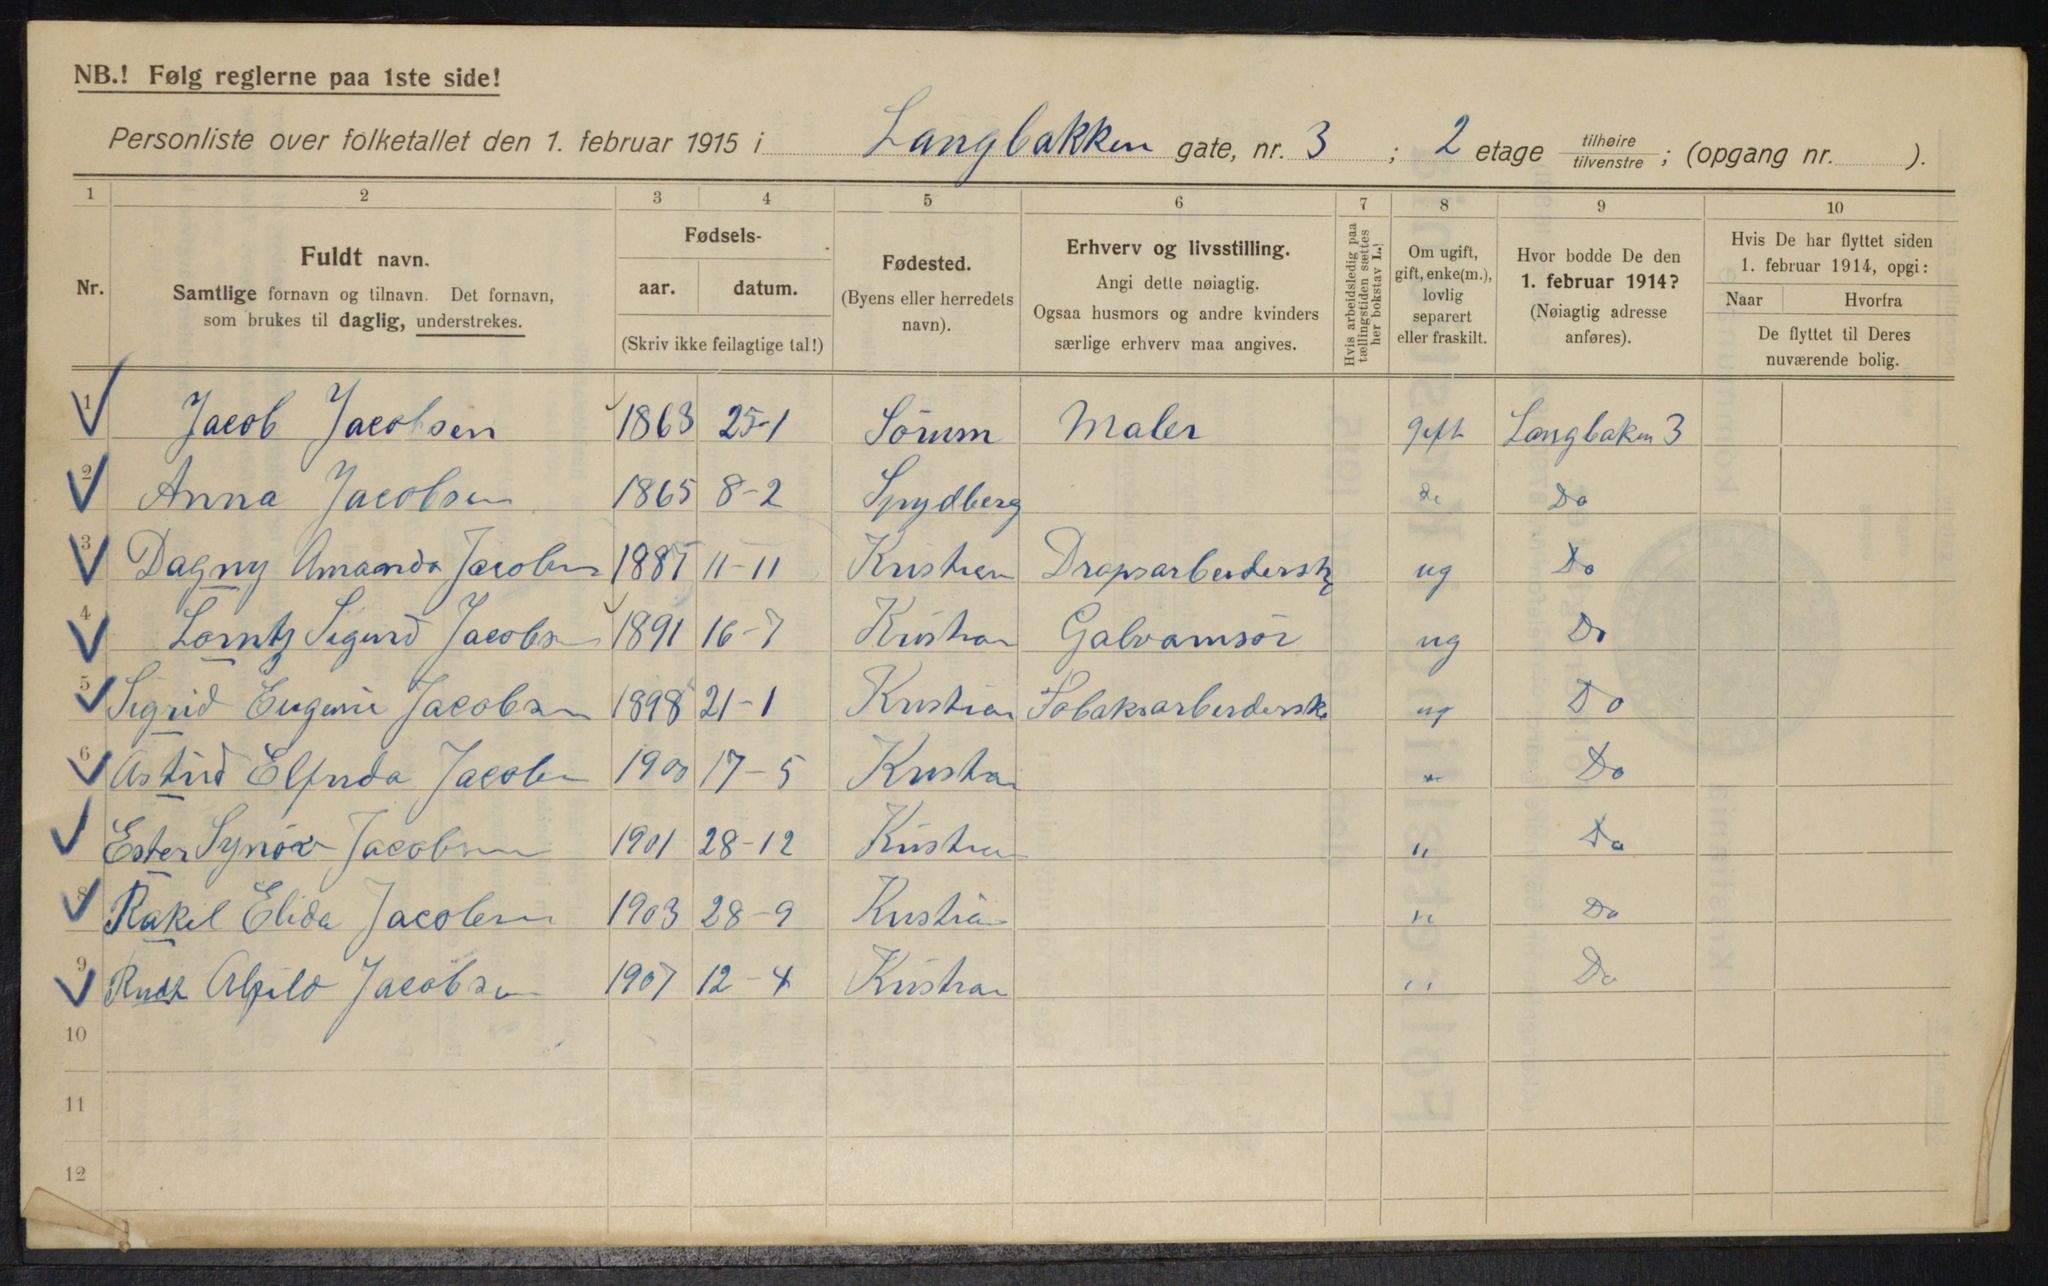 NB.! Følg reglerne paa 1ste side!
Personliste over folketallet den 1. februar 1915 i Langbakken gate, nr. 3 ; 2 etage tilhøire/tilvenstre ; (opgang nr. ).
1 2 3 4 5 6 7 8 9 10
Nr.
Fuldt navn.
Samtlige fornavn og tilnavn. Det fornavn,
som brukes til daglig, understrekes.
Fødsels-
aar. datum.
(Skriv ikke feilagtige tal!)
Fødested.
(Byens eller herredets
navn).
Erhverv og livsstilling.
Angi dette nøiagtig.
Ogsaa husmors og andre kvinders
særlige erhverv maa angives.
Hvis arbeidsledig paa
tællingstiden sættes
her bokstav L.!
Om ugift,
gift, enke(m.),
lovlig
separert
eller fraskilt.
Hvor bodde De den
1. februar 1914?
(Nøiagtig adresse
anføres).
Hvis De har flyttet siden
1. februar 1914, opgi:
Naar Hvorfra
De flyttet til Deres
nuværende bolig.
1 Jacob Jacobsen 1863 25-1 Sörum Maler gift Langbaken 3
2 Anna Jacobsen 1865 8-2 Spydberg Do Do
3 Dagny Amanda Jacobsen 1887 11-11 Kristian Dropsarbeiderske ug Do
4 Lorntz Sigurd Jacobsen 1891 16-7 Kristian Galvanisör ug Do
5 Sigrid Eugenie Jacobsen 1898 21-1 Kristian Tobaksarbeiderske ug Do
6 Astrid Elfrida Jacobsen 1900 17-5 Kristian " Do
Ester Synöve Jacobsen 1901 28-12 Kristian " Do
8 Rakel Elida Jacobsen 1903 28-9 Kristian " Do
9 Rut Alfild Jacobsen 1907 12-4 Kristian " Do
10
11
12